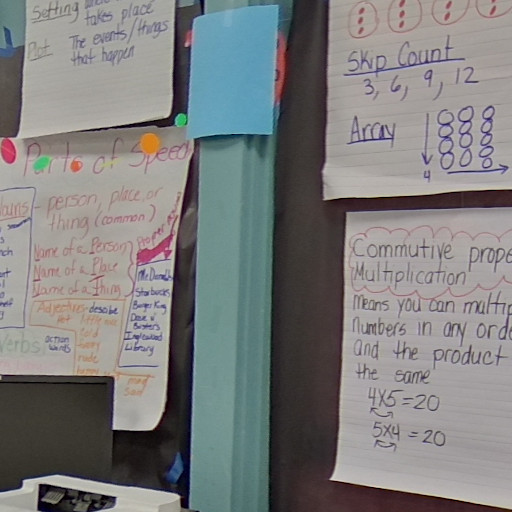 Setting
takes place
Plot The events/things
that happen
Parts of Speech
Nouns - person, place, or
thing (common)
Name of a Person
Name of a Place
Name of a Thing
Proper
McDonalds
Starbucks
Burger King
Dave &
Busters
Inglewood
Library
Adjectives - describe
Verbs action
words
Skip Count
3, 6, 9, 12
Array
4
Commutive prope
Multiplication
means you can multip
numbers in any orde
and the product
the same
4x5=20
5x4=20